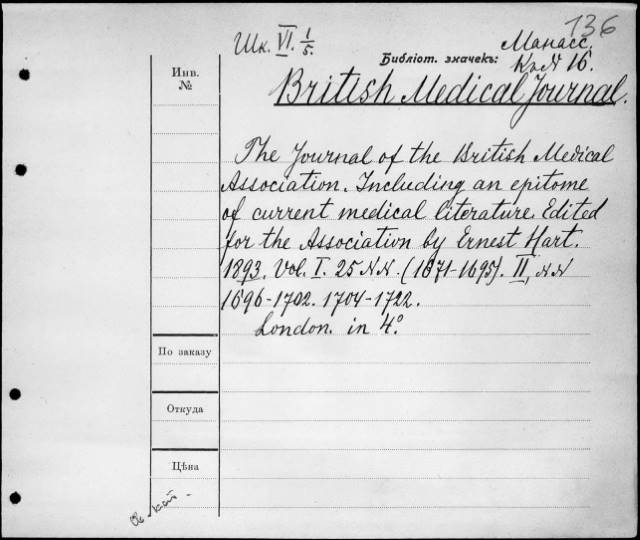 136
Шк. VI. 1/5.
Манасс.
Библіот. значекъ: К. N 16.
Инв.
№
British Medical Journal.
The Journal of the British Medical
Association. Including an epitome
of current medical literature. Edited
for the Association by Ernest Hart.
1893. Vol. I. 25 NN. (1671-1695). II, NN
1696-1702. 1704-1722.
London. in 4°.
По заказу
Откуда
Цѣна